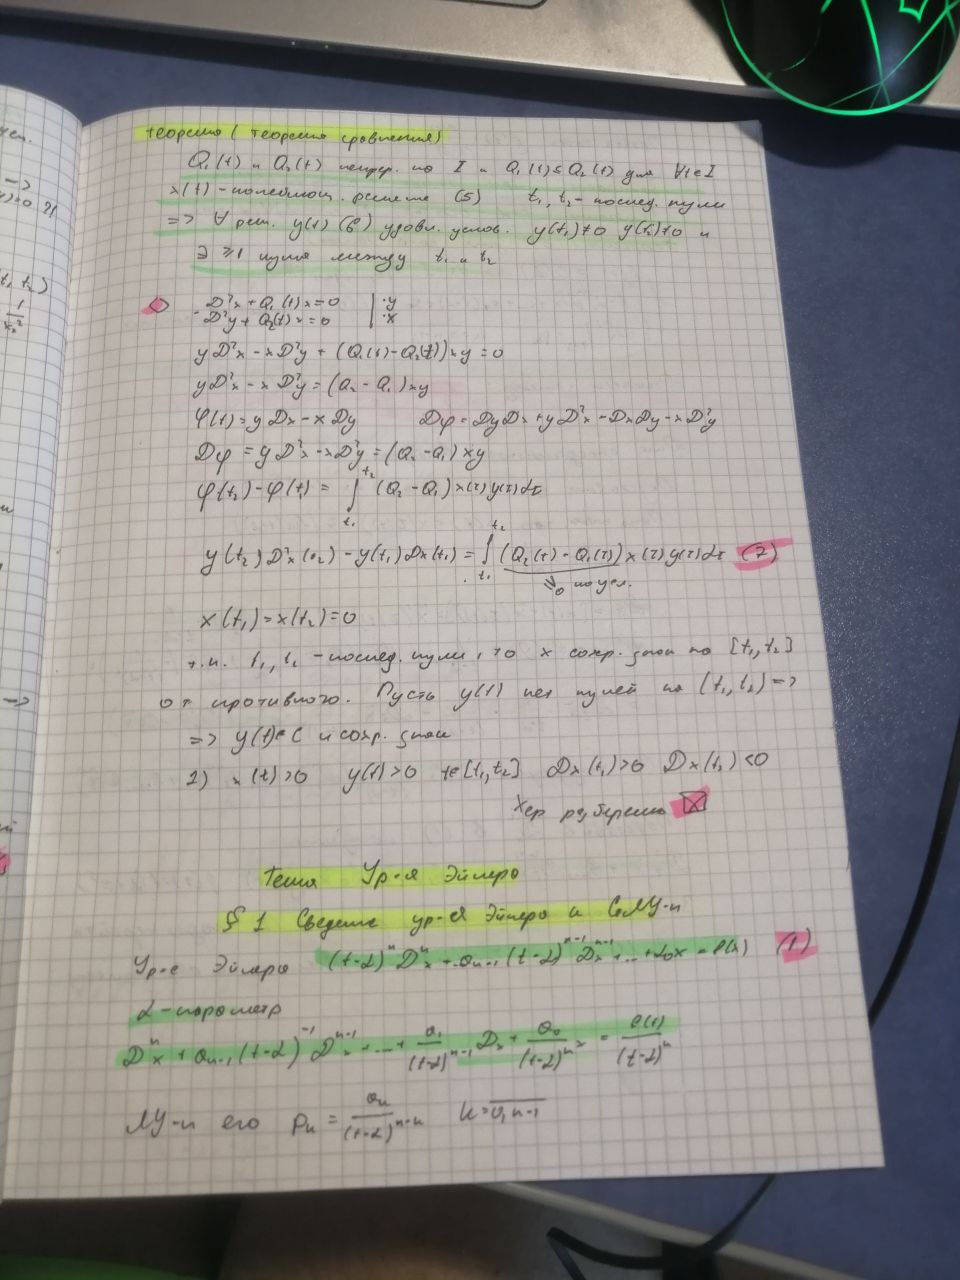 Теорема (теорема сравнения)
Q₁(t) и Q₂(t) непрер. на I и Q₁(t)≤Q₂(t) для ∀t∈I
x(t) - колеблющ. решение (5) t₁, t₂ - послед. нули
=> ∀ реш. y(t) (6) удовл. услов. y(t₁)≠0 y(t₂)≠0 и
∃ ≥1 нуля между t₁ и t₂
D²x + Q₁(t)x=0 | ·y
- D²y + Q₂(t)x=0 | ·x
yD²x - xD²y + (Q₁(t)-Q₂(t))xy = 0
yD²x - xD²y = (Q₂ - Q₁)xy
φ(t)=yDx - xDy Dφ = DyDx + yD²x - DxDy - xD²y
Dφ = yD²x - xD²y = (Q₂ - Q₁)xy
φ(t₂) - φ(t₁) = ∫ₜ₁ᵗ² (Q₂ - Q₁)x(τ)y(τ)dτ
y(t₂)D²x(t₂) - y(t₁)Dx(t₁) = ∫ₜ₁ᵗ² (Q₂(t) - Q₁(τ))x(τ)y(τ)dτ (7)
≥0 по усл.
x(t₁)=x(t₂)=0
т.к. t₁, t₂ - послед. нули, то x сохр. знак на [t₁, t₂]
от противного. Пусть y(t) нет нулей на (t₁, t₂) =>
=> y(t)∈C и сохр. знак
1) x(t)>0 y(t)>0 t∈[t₁, t₂] Dx(t₁)>0 Dx(t₂)<0
Хер разберешь
Тема Ур-я Эйлера
§ 1 Сведение ур-я Эйлера к
Ур-е Эйлера (t-α)ⁿDⁿx + aₙ₋₁(t-α)ⁿ⁻¹Dⁿ⁻¹x + ... + a₀x = f(t) (1)
α - параметр
Dⁿx + aₙ₋₁(t-α)⁻¹Dⁿ⁻¹x + ... + a₁/(t-α)ⁿ⁻¹ Dx + a₀/(t-α)ⁿ x = f(t)/(t-α)ⁿ
его pₖ = aₖ/(t-α)ⁿ⁻ᵏ k=0,n-1